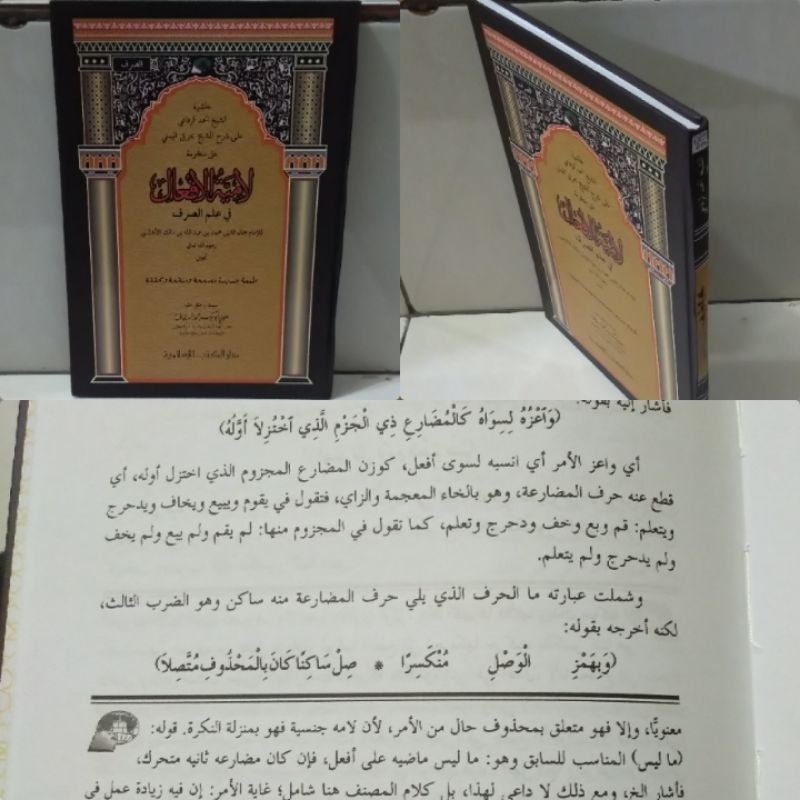 الصرف
حاشية
الشيخ أحمد الرفاعي
على شرح الشيخ بحرق اليمني
على منظومة
لامية الأفعال
في علم الصرف
للإمام جمال الدين محمد بن عبد الله بن مالك الأندلسي
رحمهم الله تعالى
آمين
طبعة جديدة مصححة ومنقحة ومحققة
فأشار إليه بقوله:
(وَٱعْزُهُ لِسِوَاهُ كَالْمُضَارِعِ ذِي الْجَزْمِ الَّذِي ٱخْتُزِلَا أَوَّلُهُ)
أي واعز الأمر أي انسبه لسوى أفعل، كوزن المضارع المجزوم الذي اختزل أوله، أي
قطع عنه حرف المضارعة، وهو بالخاء المعجمة والزاي، فتقول في يقوم ويبيع ويخاف ويدحرج
ويتعلم: قم وبع وخف ودحرج وتعلم، كما تقول في المجزوم منها: لم يقم ولم يبع ولم يخف
ولم يدحرج ولم يتعلم.
وشملت عبارته ما الحرف الذي يلي حرف المضارعة منه ساكن وهو الضرب الثالث،
لكنه أخرجه بقوله:
(وَبِهَمْزِ الْوَصْلِ مُنْكَسِرًا * صِلْ سَاكِنًا كَانَ بِالْمَحْذُوفِ مُتَّصِلَا)
معنويًّا، وإلا فهو متعلق بمحذوف حال من الأمر، لأن لامه جنسية فهو بمنزلة النكرة. قوله:
(ما ليس) المناسب للسابق وهو: ما ليس ماضيه على أفعل، فإن كان مضارعه ثانيه متحرك،
فأشار الخ، ومع ذلك لا داعي لهذا، بل كلام المصنف هنا شامل؛ غاية الأمر: إن فيه زيادة عمل في